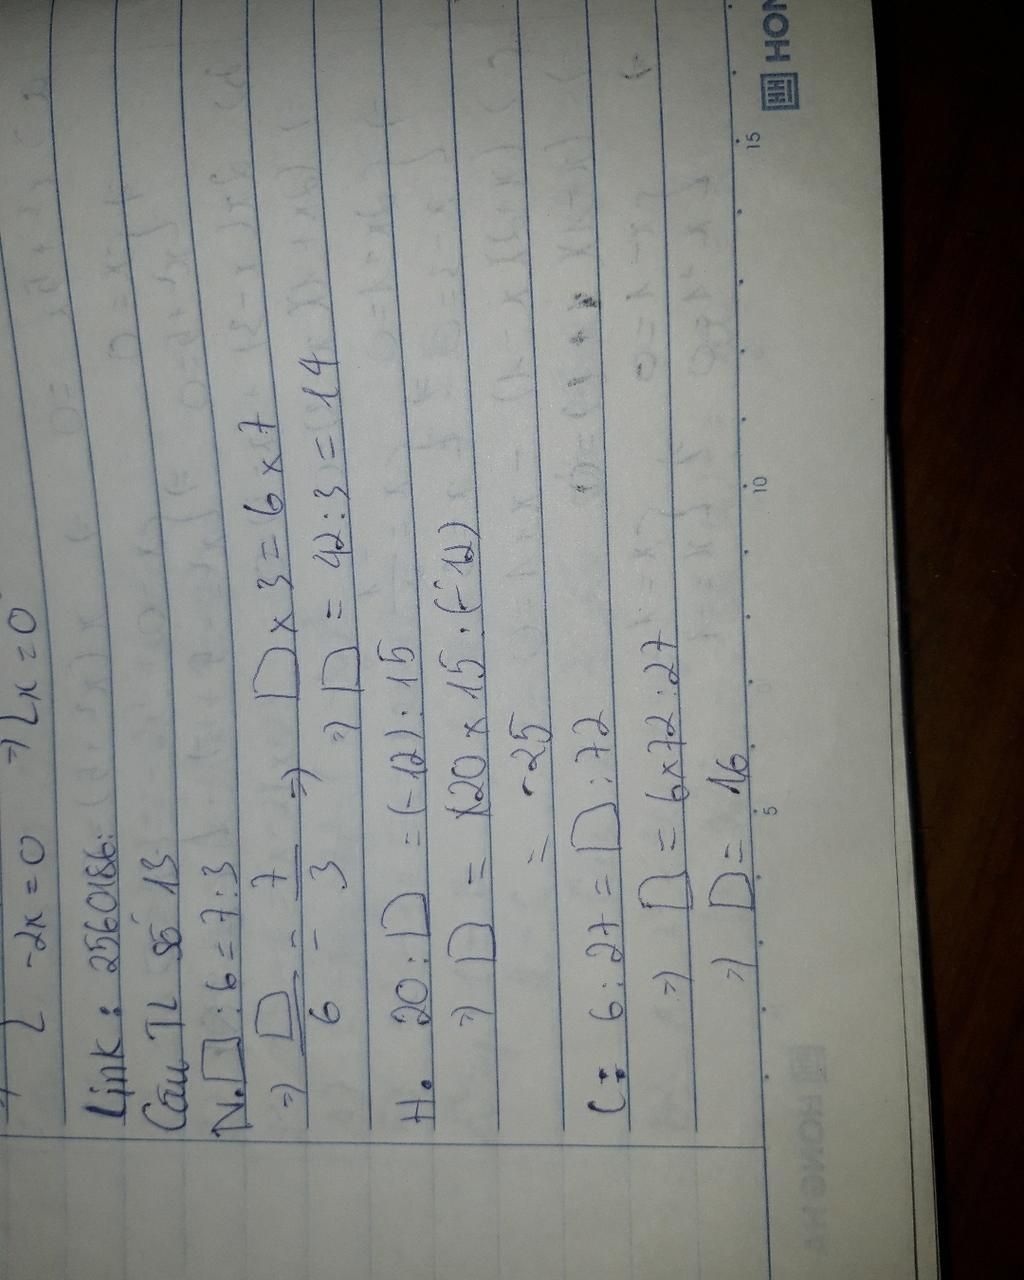 -2x = 0 => 2x = 0
Link : 2560186:
Câu TL số 13
N. □ : 6 = 7 : 3
=> □/6 = 7/3 => □ x 3 = 6 x 7
=> □ = 42 : 3 = 14
H. 20 : □ = (-12) : 15
=> □ = 20 x 15 : (-12)
= -25
C: 6 : 27 = □ : 72
=> □ = 6 x 72 : 27
=> □ = 16
5 10 15
HON